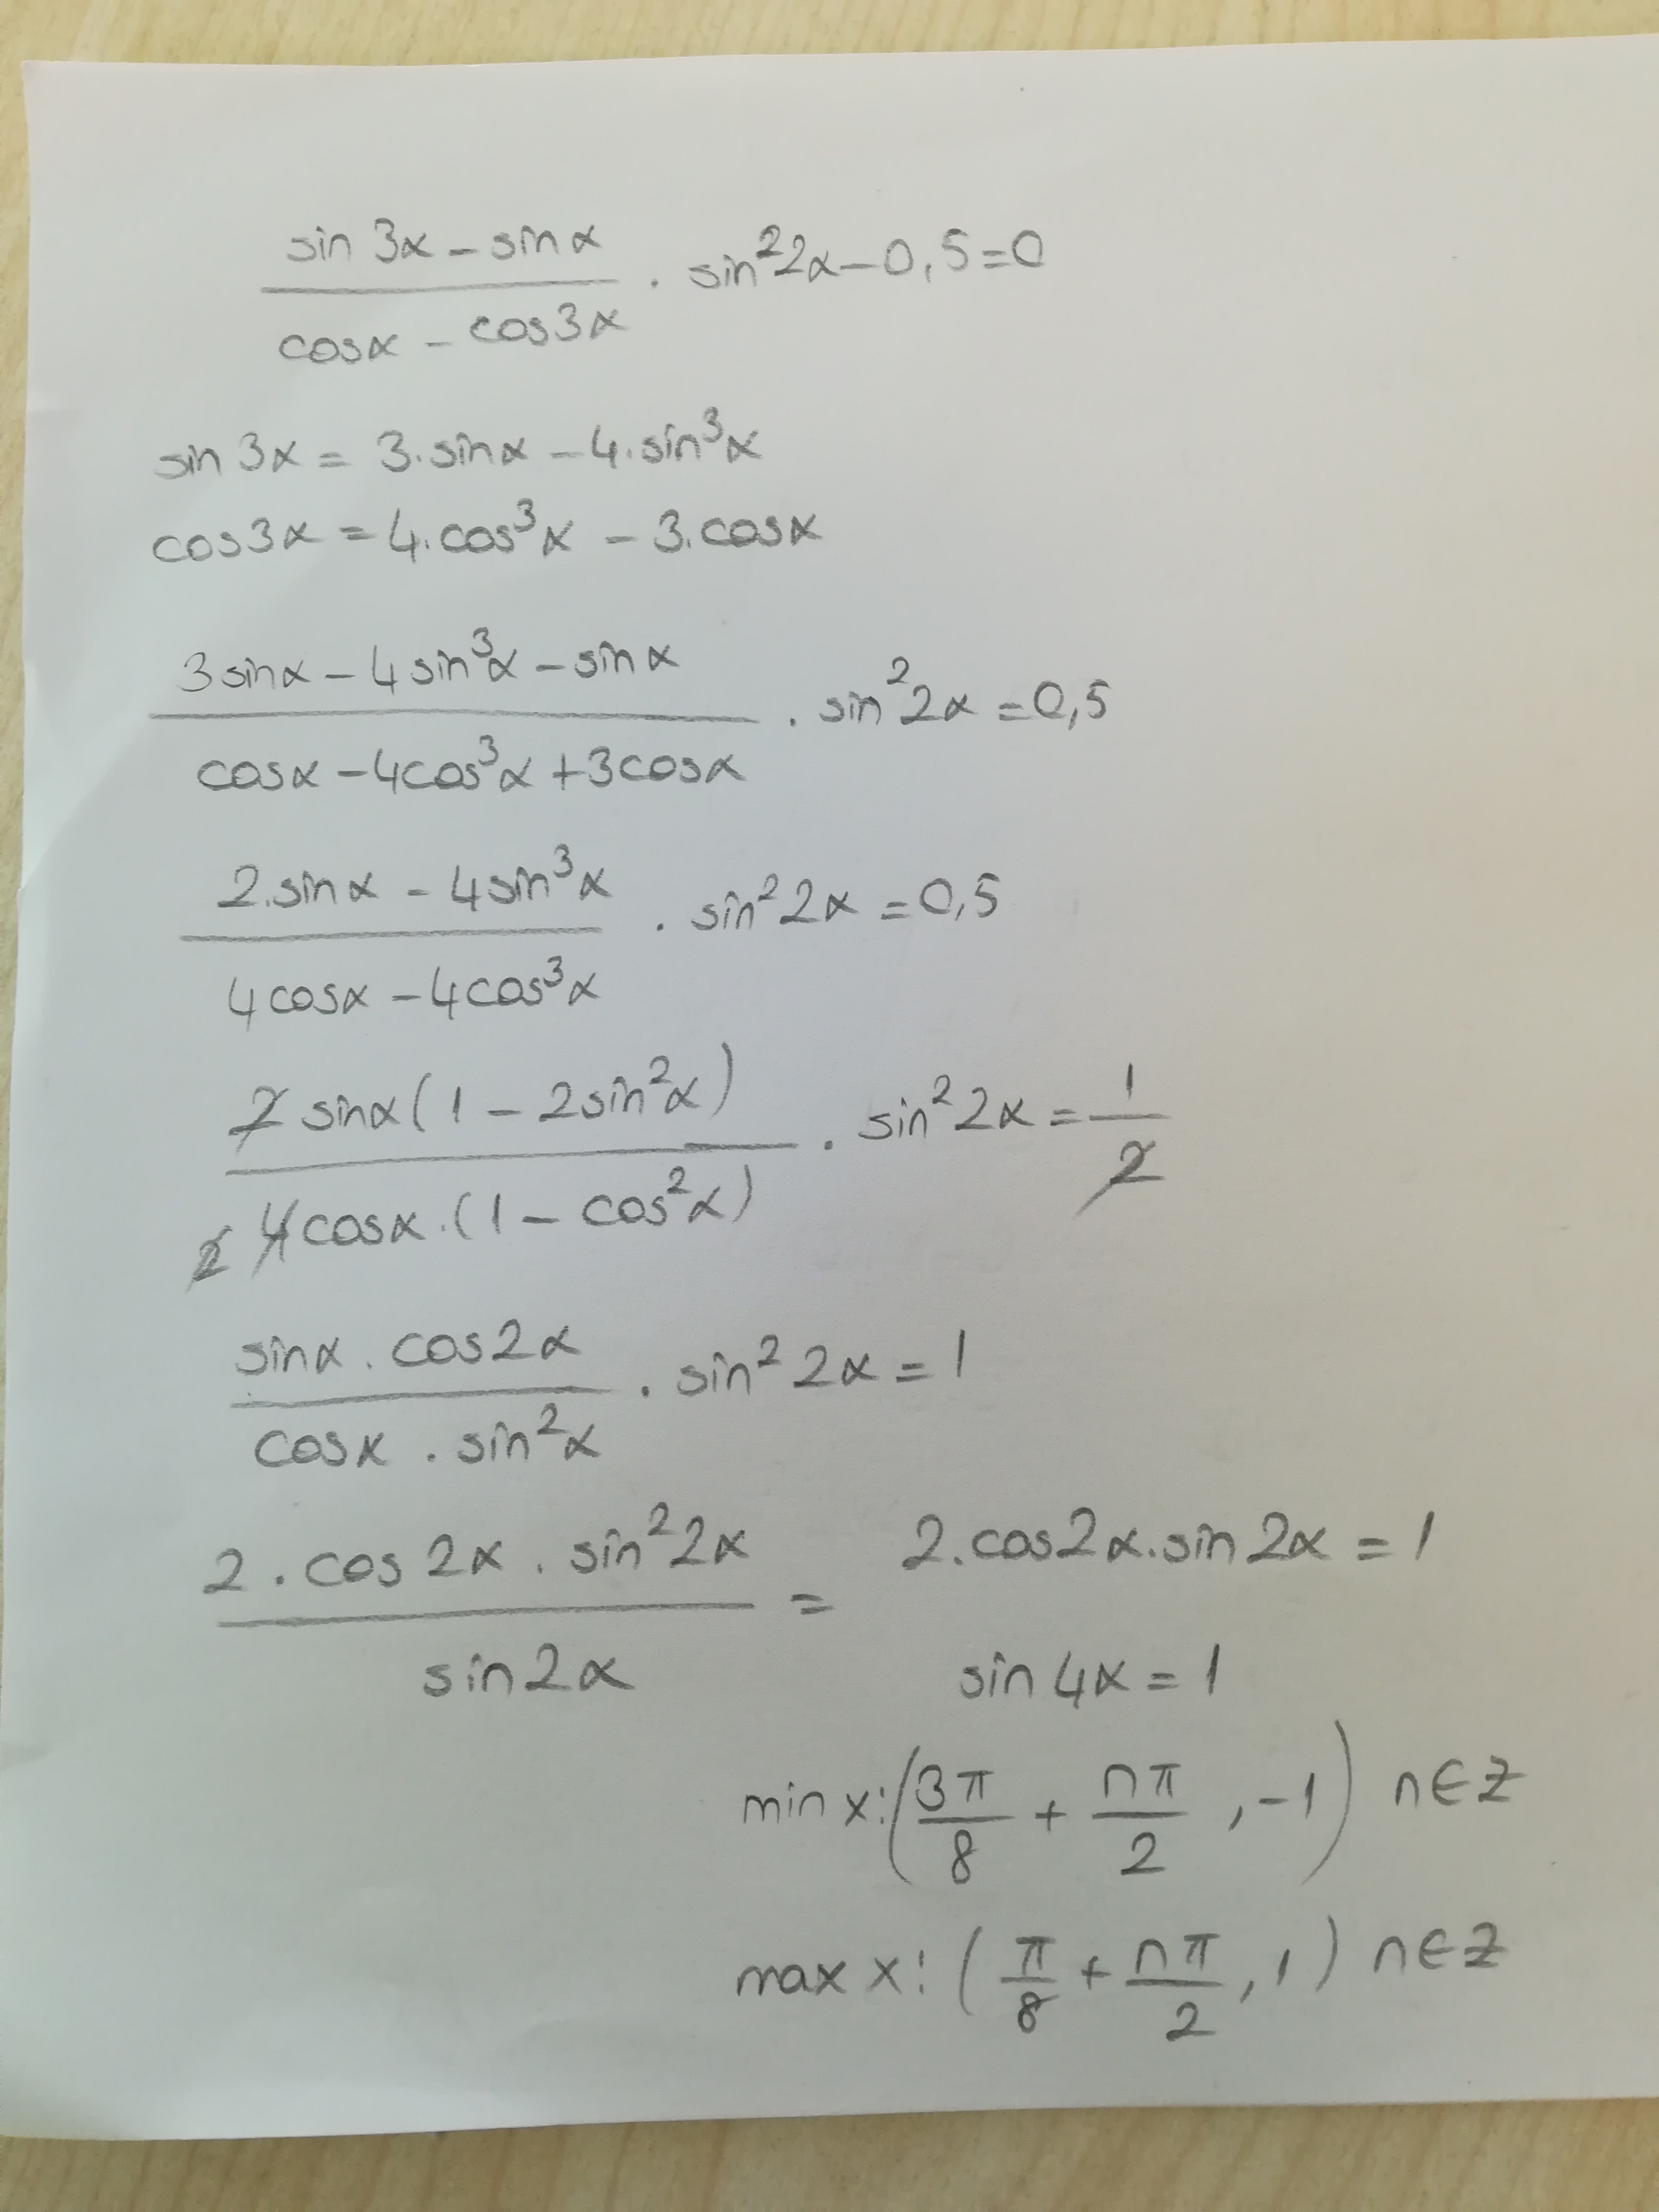 sin 3x - sinx / cosx - cos3x . sin²2x - 0,5 = 0
sin 3x = 3.sinx - 4.sin³x
cos3x = 4.cos³x - 3.cosx
3sinx - 4sin³x - sinx / cosx - 4cos³x + 3cosx . sin²2x = 0,5
2.sinx - 4sin³x / 4cosx - 4cos³x . sin²2x = 0,5
2 sinx(1 - 2sin²x) / 2 4cosx.(1 - cos²x) . sin²2x = 1/2
sinx . cos2x / cosx . sin²x . sin²2x = 1
2 . cos 2x . sin²2x / sin2x = 2.cos2x.sin2x = 1
sin 4x = 1
min x: (3π/8 + nπ/2 , -1) n∈Z
max x: (π/8 + nπ/2 , 1) n∈Z